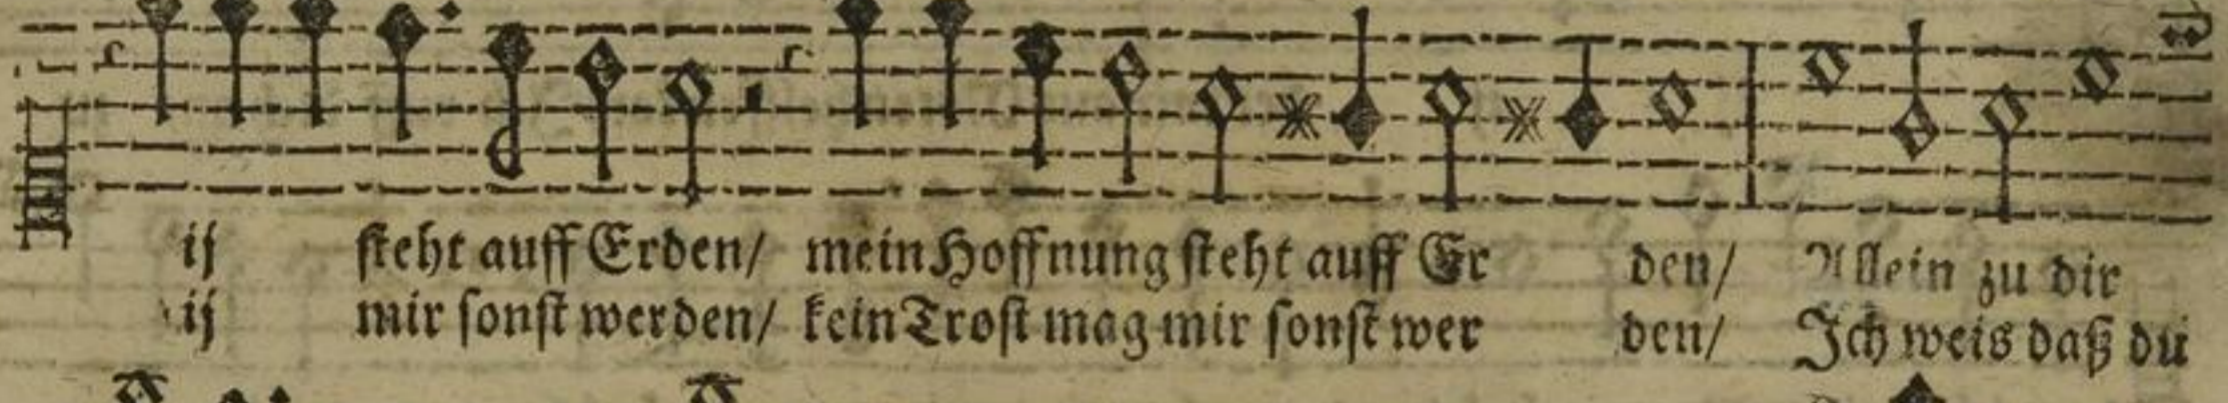 ij steht auff Erden/ mein Hoffnung steht auff Er den/ Allein zu dir
ij mir sonst werden/ kein Trost mag mir sonst wer den/ Ich weis daß du